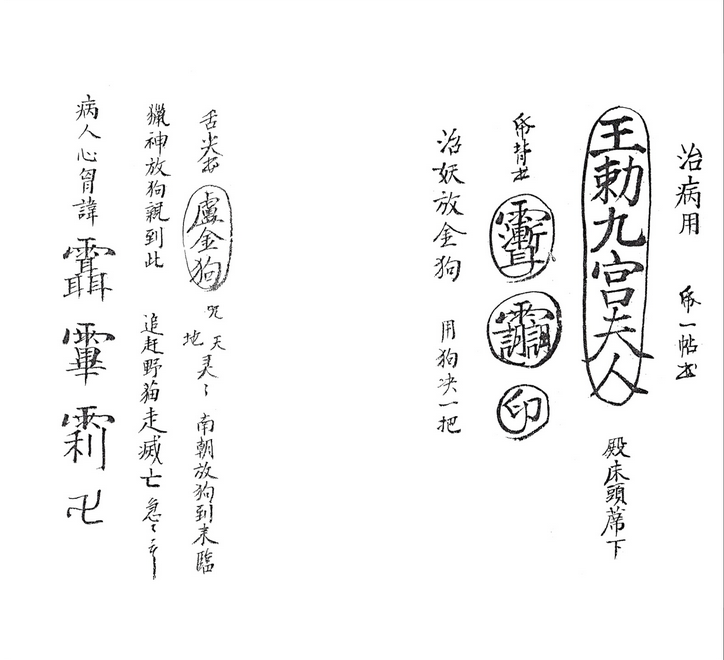 治病用 帋一帖书
王勅九宫夫人 殿床頭蓆下
帋背书 印
治妖放金狗 用狗决一把
舌尖书 盧金狗 咒 天地灵々 南朝放狗到来臨
獵神放狗親到此 追赶野猫走滅亡 急々
病人心胷諱 卍